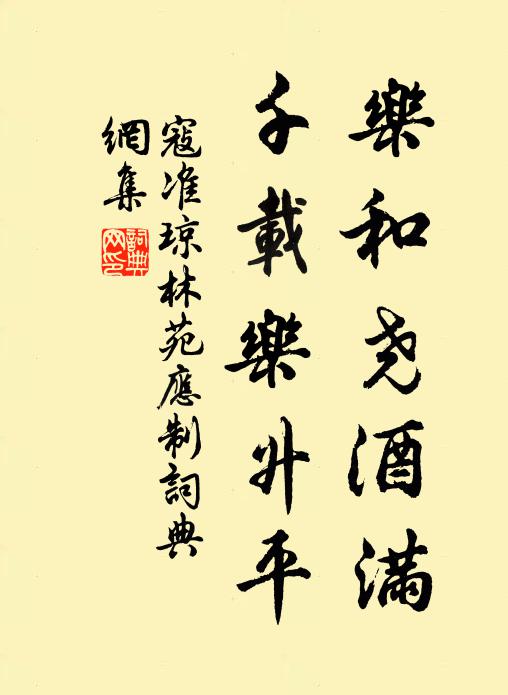 樂和尧酒滿
千載樂升平
寇准琼林苑應制詞典
網集
詞典
网印